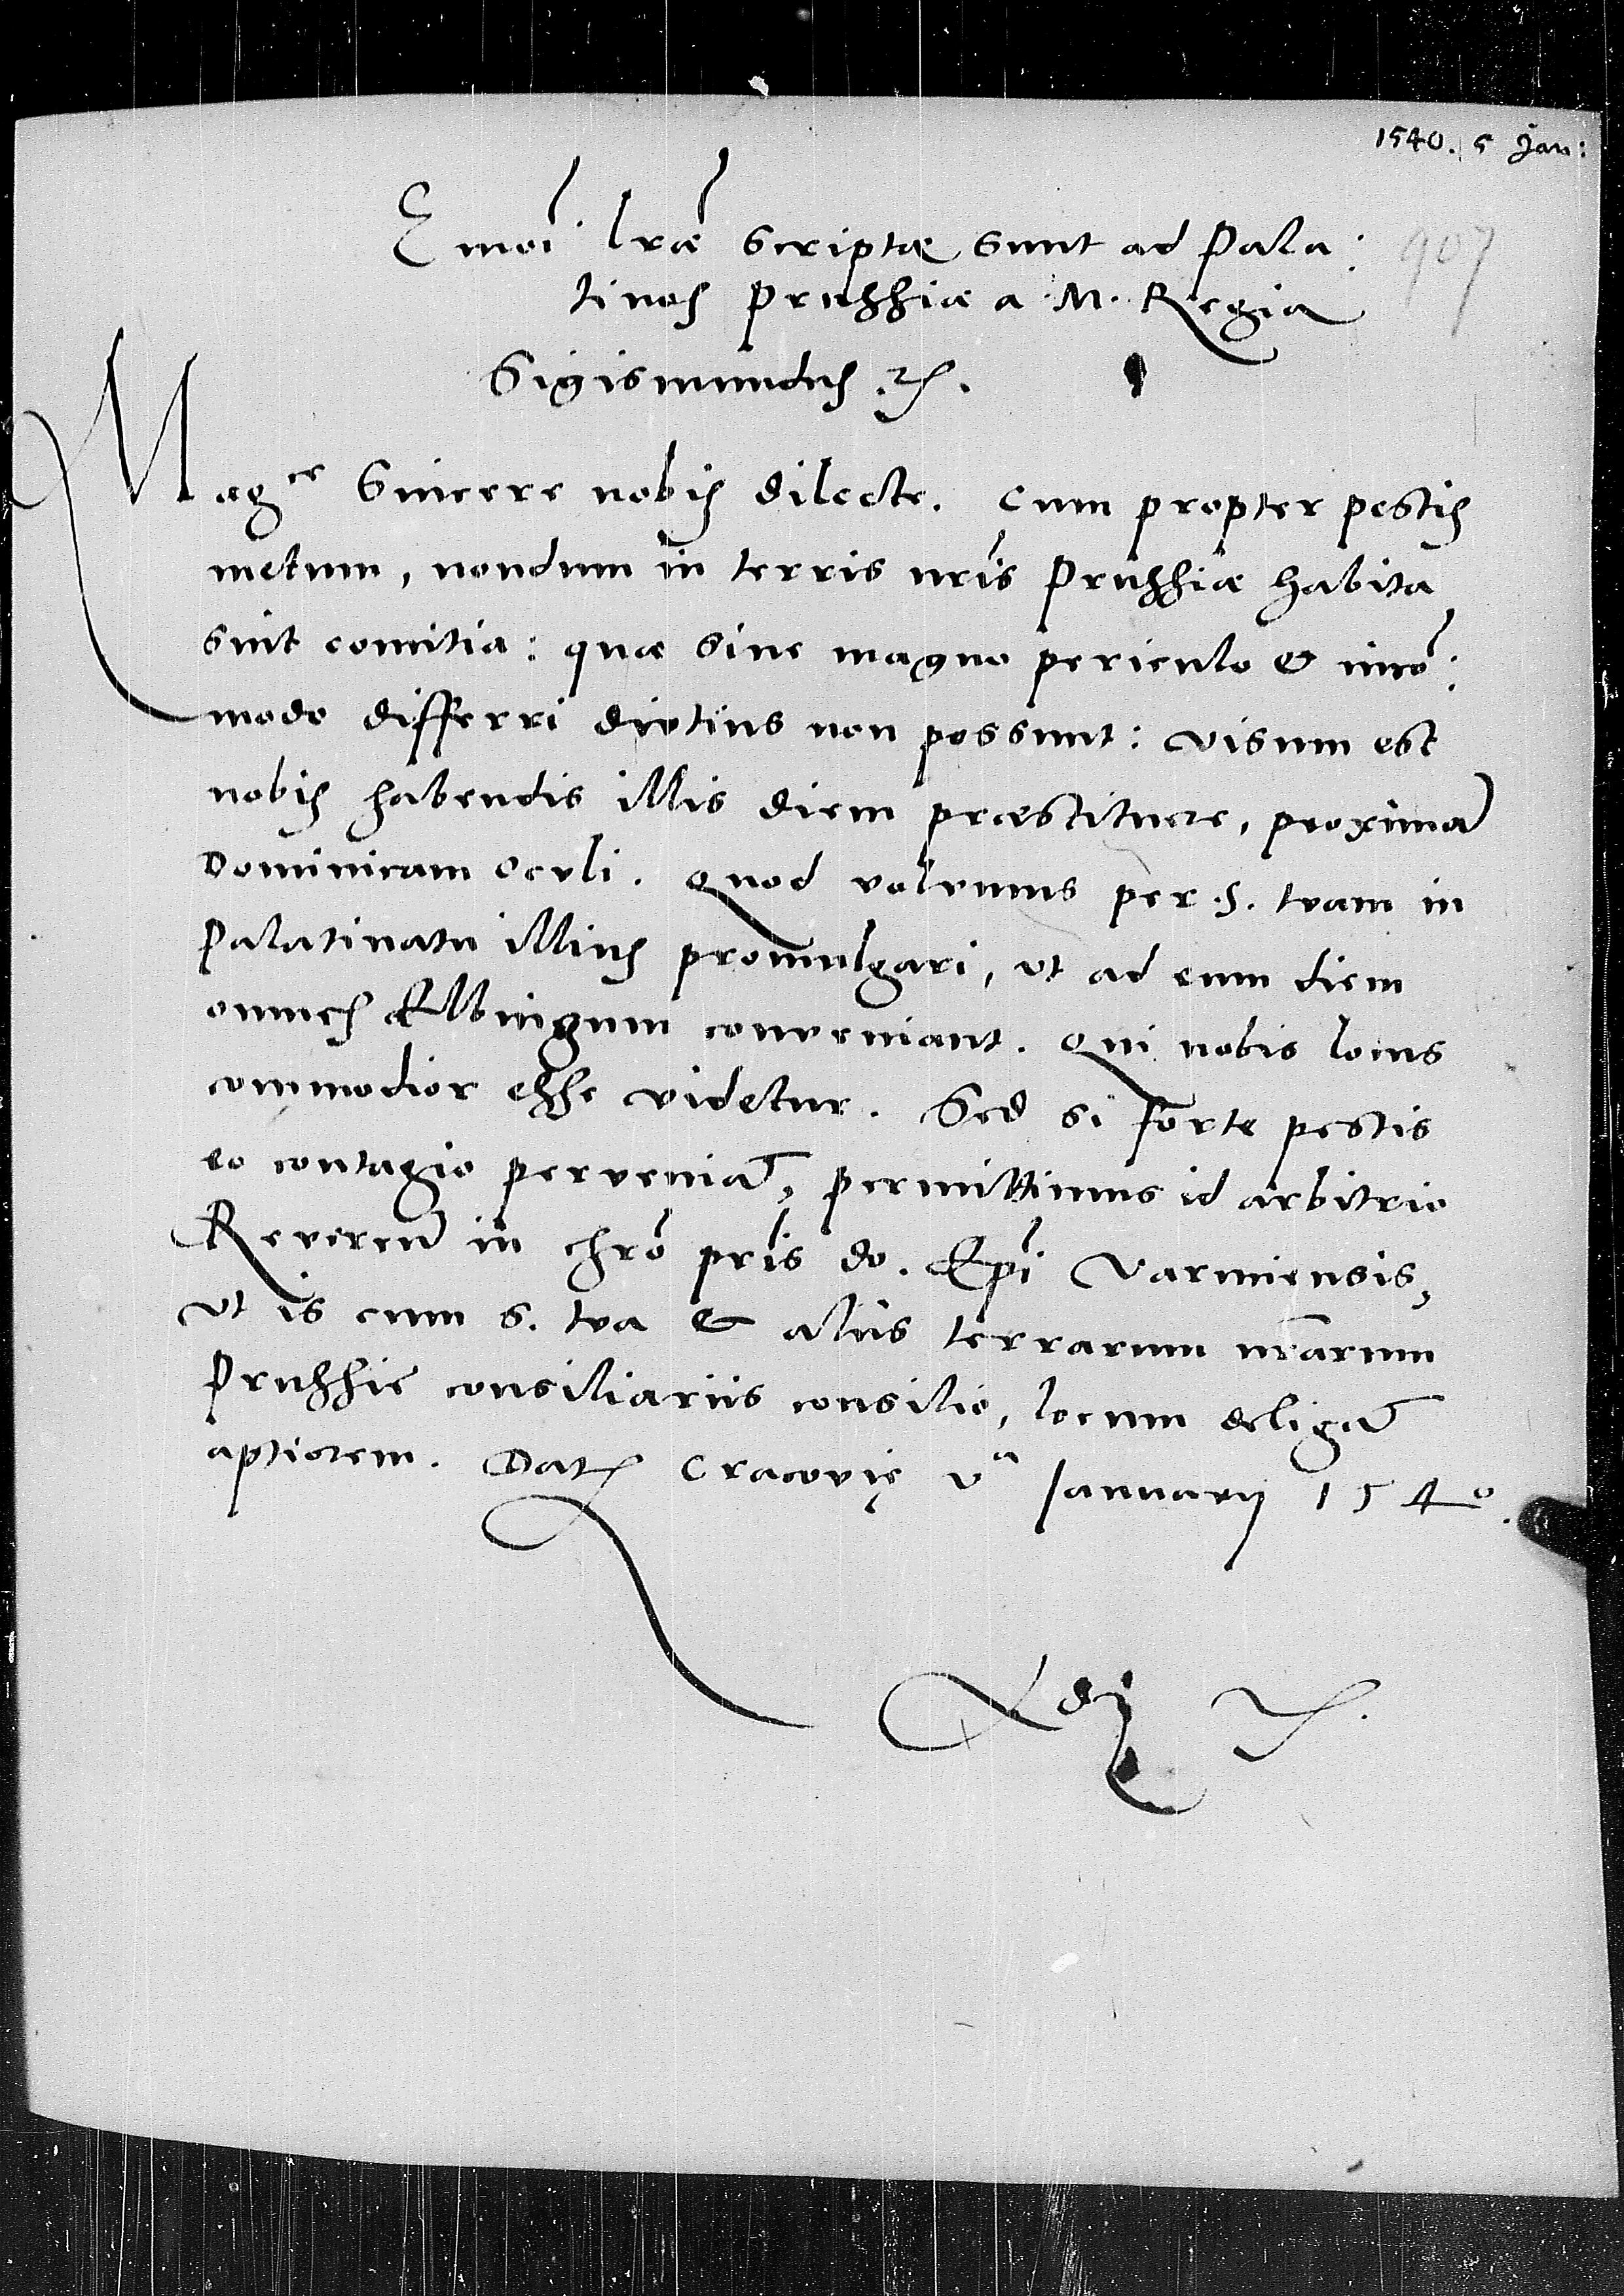 1540. 5 Jan:
Emõi lrãe scriptæ sunt ad Pala:
907
tinos Prussiæ a M. Regia
Sigismundus etc.
Magce Sincere nobis dilecte. Cum propter pestis
metum, nondum in terris nrĩs Prussiæ habita
sint comitia: quæ sine magno periculo & incõ:
modo differri divtius non possunt: visum est
nobis habendis illis diem præstituere, proximã
Dominicam Ocvli. Quod volvmus per .S. tvam in
Palatinatu illius promulgari, vt ad eum diem
omnes Elbingum conveniant. Qui nobis locus
commodior esse videtur. Sed si forte pestis
eo contagio perveniat, permittimus id arbitrio
Reveren in chrõ prĩs do. Epĩ Varmiensis,
vt is cum S. tva & aliis terrarum nrãrum
Prussie consiliariis consilio, locum deligat
aptiorem. Dat Cracovię va Ianuarij 1540.
etc.